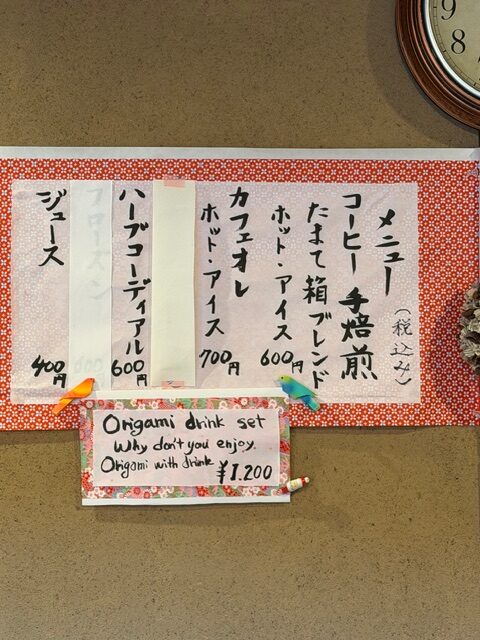 メニュー（税込み）
コーヒー 手焙煎
たまて箱ブレンド
ホット・アイス 600円
カフェオレ
ホット・アイス 700円
ハーブコーディアル 600円
フローズン 600
ジュース 400円
Origami drink set
Why don't you enjoy.
Origami with drink
¥1.200
9
8